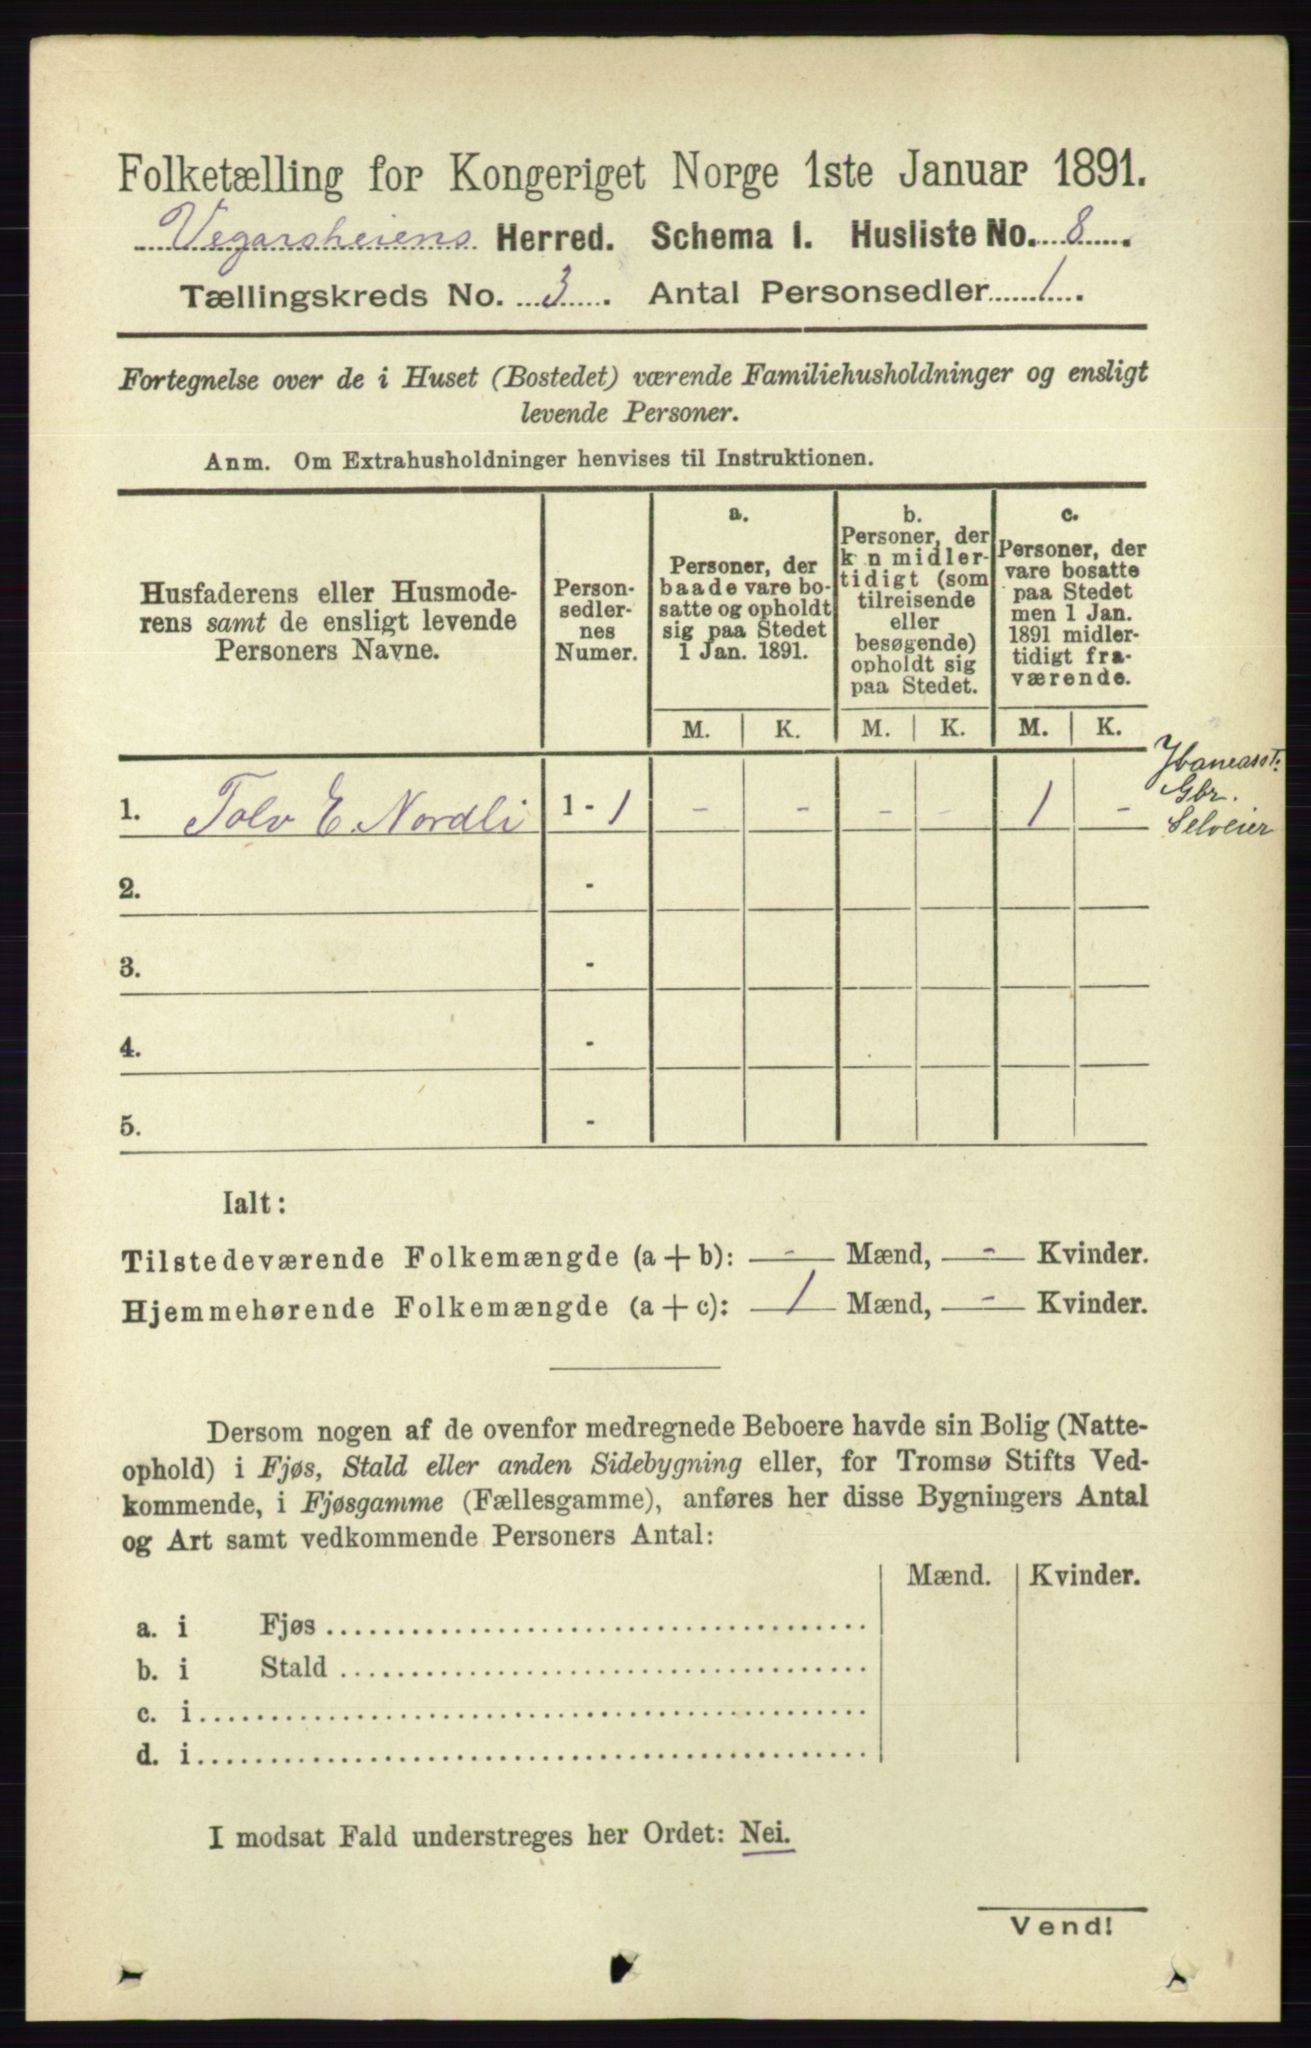 Folketælling for Kongeriget Norge 1ste Januar 1891.
Vegarsheiens Herred. Schema I. Husliste No. 8.
Tællingskreds No. 3. Antal Personsedler 1.
Fortegnelse over de i Huset (Bostedet) værende Familiehusholdninger og ensligt
levende Personer.
Anm. Om Extrahusholdninger henvises til Instruktionen.
Husfaderens eller Husmode-
rens samt de ensligt levende
Personers Navne.
Person-
sedler-
nes
Numer.
a.
Personer, der
baade vare bo-
satte og opholdt
sig paa Stedet
1 Jan. 1891.
b.
Personer, der
k n midler-
tidigt (som
tilreisende
eller
besøgende)
opholdt sig
paa Stedet.
c.
Personer, der
vare bosatte
paa Stedet
men 1 Jan.
1891 midler-
tidigt fra-
værende.
M. K. M. K. M. K.
1. Tolv E. Nordli 1 - 1 - - - - 1 -
Gbr.
Selveier
2. -
3. -
4. -
5. -
Ialt:
Tilstedeværende Folkemængde (a + b): - Mænd, - Kvinder.
Hjemmehørende Folkemængde (a + c): 1 Mænd, - Kvinder.
Dersom nogen af de ovenfor medregnede Beboere havde sin Bolig (Natte-
ophold) i Fjøs, Stald eller anden Sidebygning eller, for Tromsø Stifts Ved-
kommende, i Fjøsgamme (Fællesgamme), anføres her disse Bygningers Antal
og Art samt vedkommende Personers Antal:
Mænd. Kvinder.
a. i Fjøs
b. i Stald
c. i
d. i
I modsat Fald understreges her Ordet: Nei.
Vend!